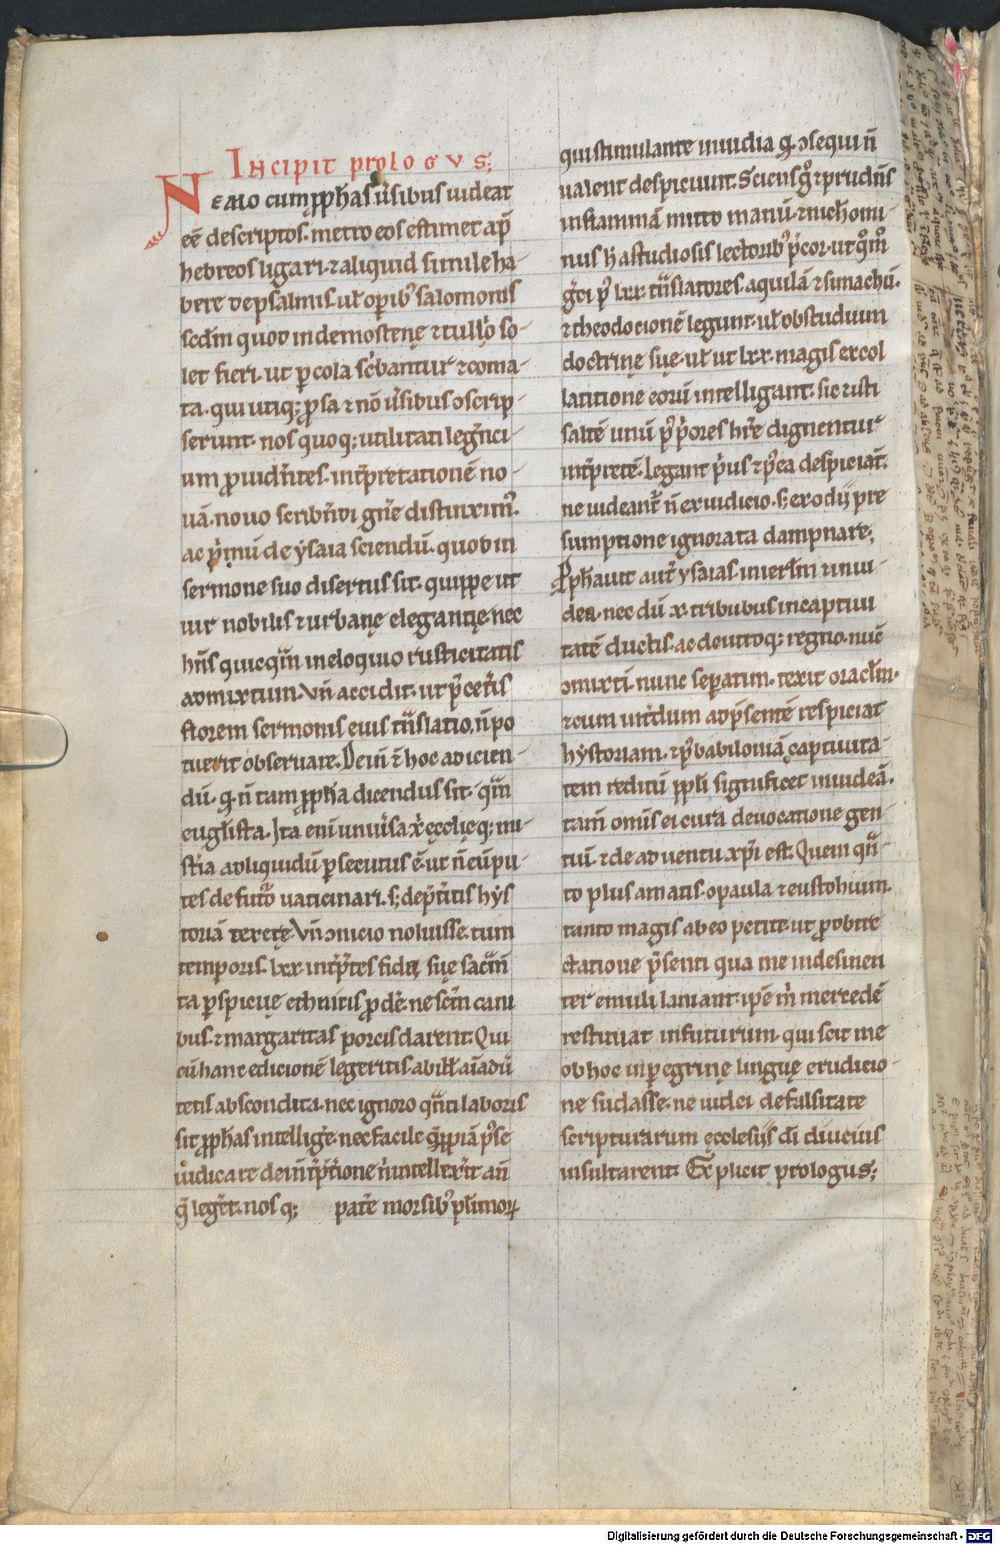 Incipit prologus;
Nemo cum ꝓphas ūsibus uideat
eē descriptos. metro eos estimet ap̄
hebreos ligari. ⁊ aliquid simile ha-
bere de psalmis. uł opib; salomonis
scd̄m quod in demostenę ⁊ tullio so-
let fieri. ut ꝑ cola sc̄bantur ⁊ coma-
ta. qui utiq; ꝓsa ⁊ nō ūsibus ɔscrip-
serunt. nos quoq; utilitati leḡnci-
um ꝓuidn̄tes. intp̄retationē no-
uā. nouo scribn̄di gn̄e distinxim᾽.
ac p̄mū de ysaia sciendū. quod in
sermone suo disertus sit. quippe ut
uir nobilis ⁊ urbanę elegantię. nec
hn̄s quicq̄m in eloquio rusticitatis
admixtum. Vn̄ accidit. ut p̄ cet̄is
florem sermonis eius tn̄slatio. n̄ po
tuerit obseruare. Dein̄ ē hoc adicien-
dū. ꝙ n̄ tam ꝓpha dicendus sit. q̄m
eug̃lista. Ita eni uniūsa xp̄i ęcclieq; mi-
stīa ad liquidū ꝓsecutus ē. ut n̄ eū pu-
tes de futo uaticinari. s; de p̄titis hys
toriā texere. Vn̄ ɔnicio noluisse tum
temporis. lxx. intp̄tes fidei suę sac̄m
ta ꝑspicuę ethnicis ꝓdē. ne sc̄m cani
bus. ⁊ margaritas porcis darent. Qui
cū hanc edicionē legeritis. ab ill̄ aīaduē
tetis abscondita. nec ignoro qn̄ti laboris
sit ꝓphas intellige. nec facile q̄mꝓiā p̄se
iudicare de int̄p̄tione. n̄ intellexit an̄
q̄ legēt. nos q; patē morsib; pl̄imoꝝ
qui stimulante inuidia ꝙ ɔsequi n̄
ualent despiciunt. Sciens ḡ ⁊ prudn̄s
in flammā mitto manū. ⁊ nichomi-
nus h̄ a studiosis lectorib; p̄cor. ut qm̄o
gēi p᾽ lxx. tn̄slatores. aquilā ⁊ simachū.
⁊ theodocionē legunt. uł ob studium
doctrinę suę. uł ut lxx. magis ex col
latitione eorū intelligant. sic ⁊ isti
saltē unū p᾽ p̄ores hr̄e dignentur
intp̄retē. legant p̄us ⁊ p᾽ea despiciat̄.
ne uideant̄ n̄ ex iudicio. s; ex odij pre
sumptione ignorata dampnare;
Ꝓphauit aut̄ ysaias. in ierl̄m ⁊ in iu-
dea. nec dū x. tribubus in captiui
tatē ductis. ac de utroq; regno. nūc
ɔmixtī. nunc separatim. texit oracl̄m.
⁊ cum int̄dum ad p̄sentē respiciat
hystoriam. ⁊ p᾽ babiloniā captiuita-
tem reditū ppl̄i significet in iudeā.
tam̄ omīs ei cura de uocatione gen-
tiū. ⁊ de aduentu xp̄i est. Quem qn̄-
to plus amatis. o paula ⁊ eustohium.
tanto magis ab eo petite. ut pro obtre
ctatione p̄senti qua me indesinen
ter emuli laniant. ipē m̄ mercedē
restituat in futurum. qui scit me
ob hoc in peregrinę linguę erudicio-
ne sudasse. ne iudei de falsitate
scripturarum ęcclesijs dī diucius
insultarent. Explicit prologus;
Digitalisierung gefördert durch die Deutsche Forschungsgemeinschaft - DFG